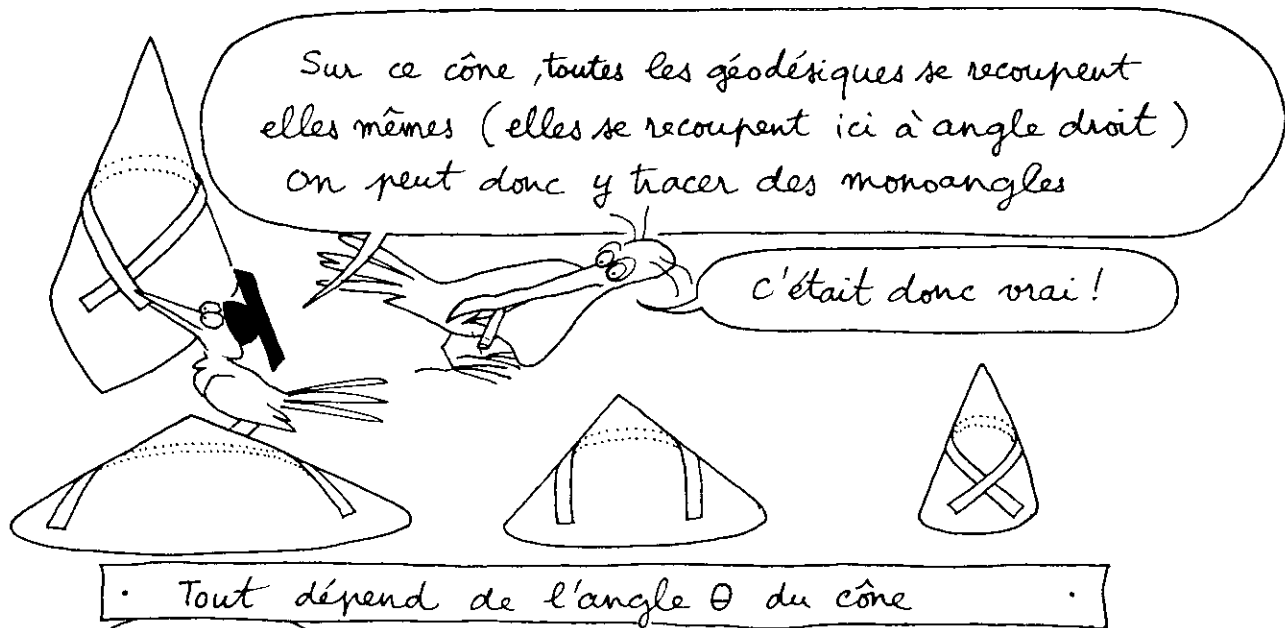 Sur ce cône, toutes les géodésiques se recoupent
elles mêmes (elles se recoupent ici à angle droit)
on peut donc y tracer des monoangles
c'était donc vrai !
Tout dépend de l'angle θ du cône